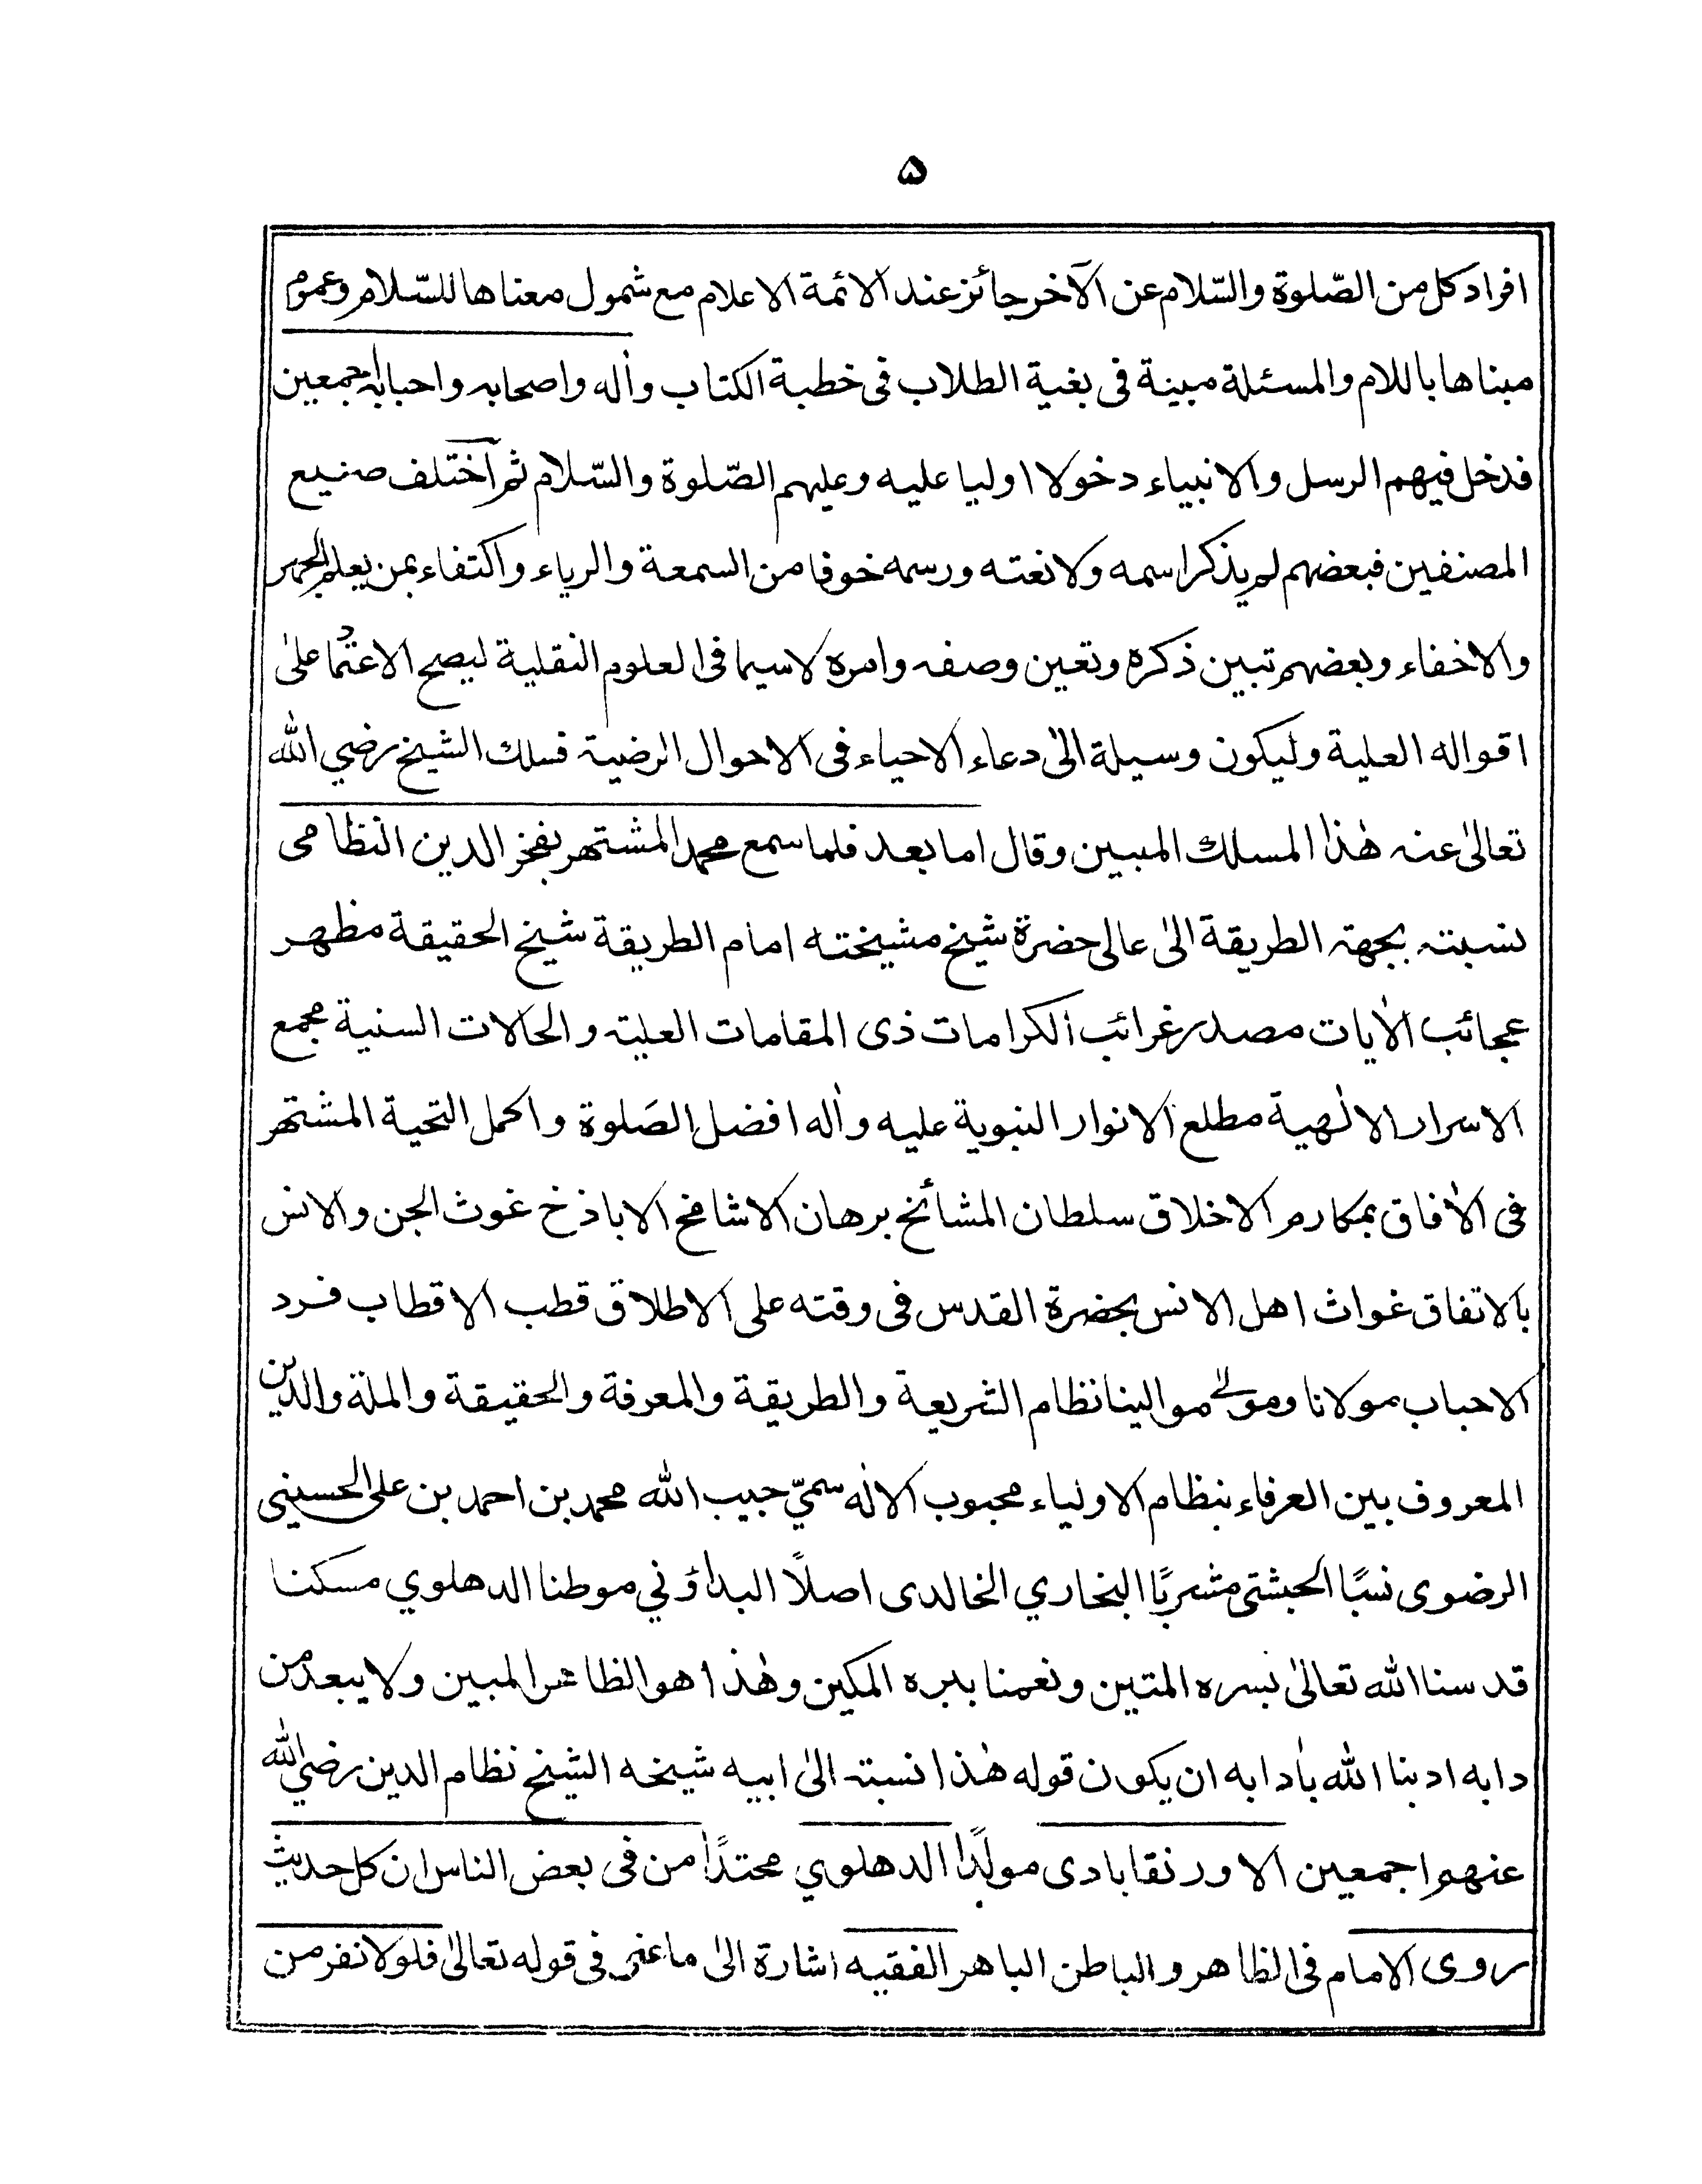 ۵
افراد كل من الصّلوة والسّلام عن الآخر جائز عند الائمة الاعلام مع شمول معناها للسّلام وعموم
مبناها باللام والمسئلة مبينة فى بغية الطلاب فى خطبة الكتاب واٰله واصحابه واحبابه اجمعين
فدخل فيهم الرسل والانبياء دخولا اوليا عليه وعليهم الصّلوة والسّلام ثم اختلف صنيع
المصنفين فبعضهم لم يذكر اسمه ولا نعته ورسمه خوفا من السمعة والرياء واكتفاء بمن يعلم الجهر
والاخفاء وبعضهم تبين ذكره وتعين وصفه وامره لاسيما فى العلوم النقلية ليصح الاعتماد علىٰ
اقواله العلية وليكون وسيلة الىٰ دعاء الاحياء فى الاحوال الرضية فسلك الشيخ رضي الله
تعالىٰ عنه هٰذا المسلك المبين وقال اما بعد فلما سمع محمد المشتهر بفخر الدين النظامى
نسبته بجهة الطريقة الىٰ عالى حضرة شيخ مشيخته امام الطريقة شيخ الحقيقة مظهر
عجائب الاٰيات مصدر غرائب الكرامات ذى المقامات العلية والحالات السنية مجمع
الاسرار الالٰهية مطلع الانوار النبوية عليه واٰله افضل الصّلوة واكمل التحية المشتهر
فى الاٰفاق بمكارم الاخلاق سلطان المشائخ برهان الاشامخ الاباذخ غوث الجن والانس
بالاتفاق غواث اهل الانس بحضرة القدس فى وقته على الاطلاق قطب الاقطاب فرد
الاحباب مولانا ومولىٰ موالينا نظام الشريعة والطريقة والمعرفة والحقيقة والملة والدين
المعروف بين العرفاء بنظام الاولياء محبوب الالٰه سميّ حبيب الله محمد بن احمد بن على الحسينى
الرضوى نسبًا الچشتى مشربًا البخاري الخالدى اصلاً البداؤني موطنا الدهلوي مسكنا
قدسنا الله تعالىٰ بسره المتين ونعمنا ببره المكين وهٰذا هو الظاهر المبين ولا يبعد من
دابه ادبنا الله باٰدابه ان يكون قوله هٰذا نسبته الىٰ ابيه شيخه الشيخ نظام الدين رضي الله
عنهم اجمعين الاورنقابادى مولدًا الدهلوي محتدًا من فى بعض الناس ان كل حديث
روى الامام فى الظاهر والباطن الباهر الفقيه اشارة الىٰ ما عنى فى قوله تعالىٰ فلولا نفر من